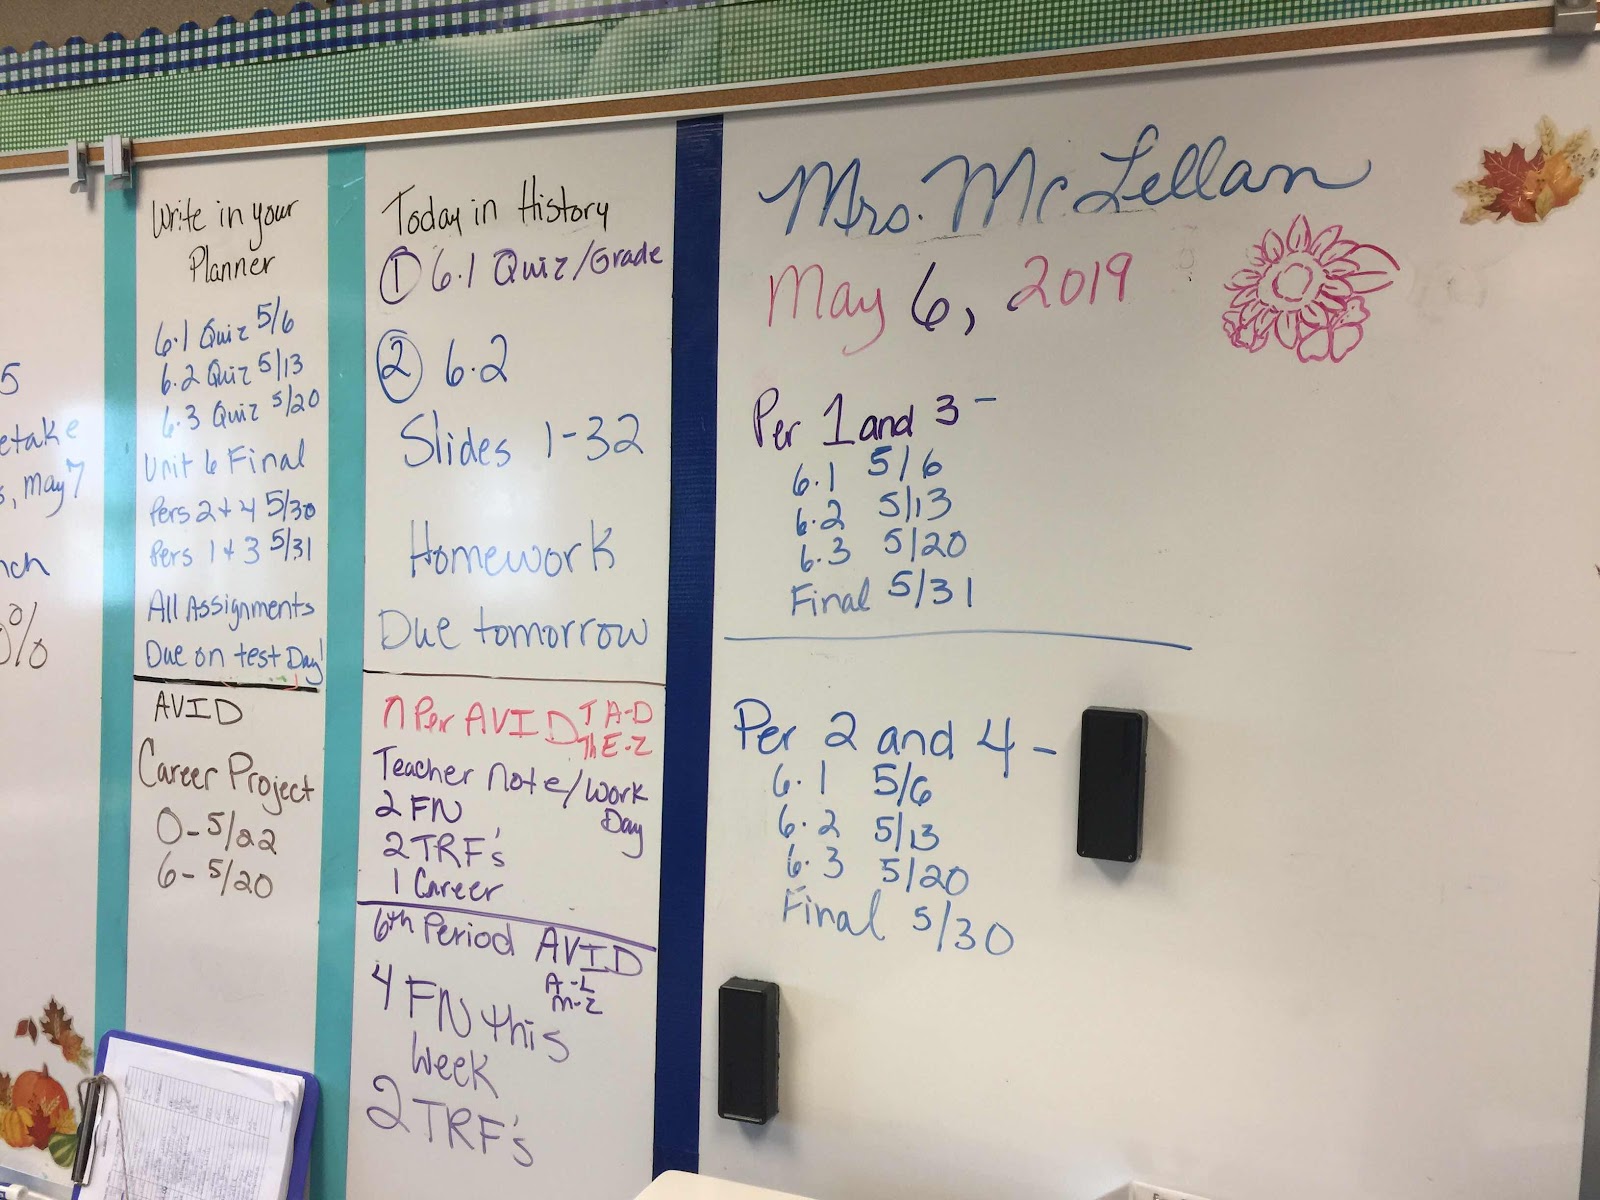 5
etake
s, May 7
nch
0%
Write in your
Planner
6.1 Quiz 5/6
6.2 Quiz 5/13
6.3 Quiz 5/20
Unit 6 Final
Pers 2+4 5/30
Pers 1+3 5/31
All Assignments
Due on test Day!
AVID
Career Project
0-5/22
6-5/20
Today in History
① 6.1 Quiz/Grade
② 6.2
Slides 1-32
Homework
Due tomorrow
Per AVID T A-D
Th E-Z
Teacher Note/Work
Day
2 FN
2 TRF's
1 Career
6th Period AVID
A-L
M-Z
4 FN this
Week
2 TRF's
Mrs. McLellan
May 6, 2019
Per 1 and 3 -
6.1 5/6
6.2 5/13
6.3 5/20
Final 5/31
Per 2 and 4 -
6.1 5/6
6.2 5/13
6.3 5/20
Final 5/30